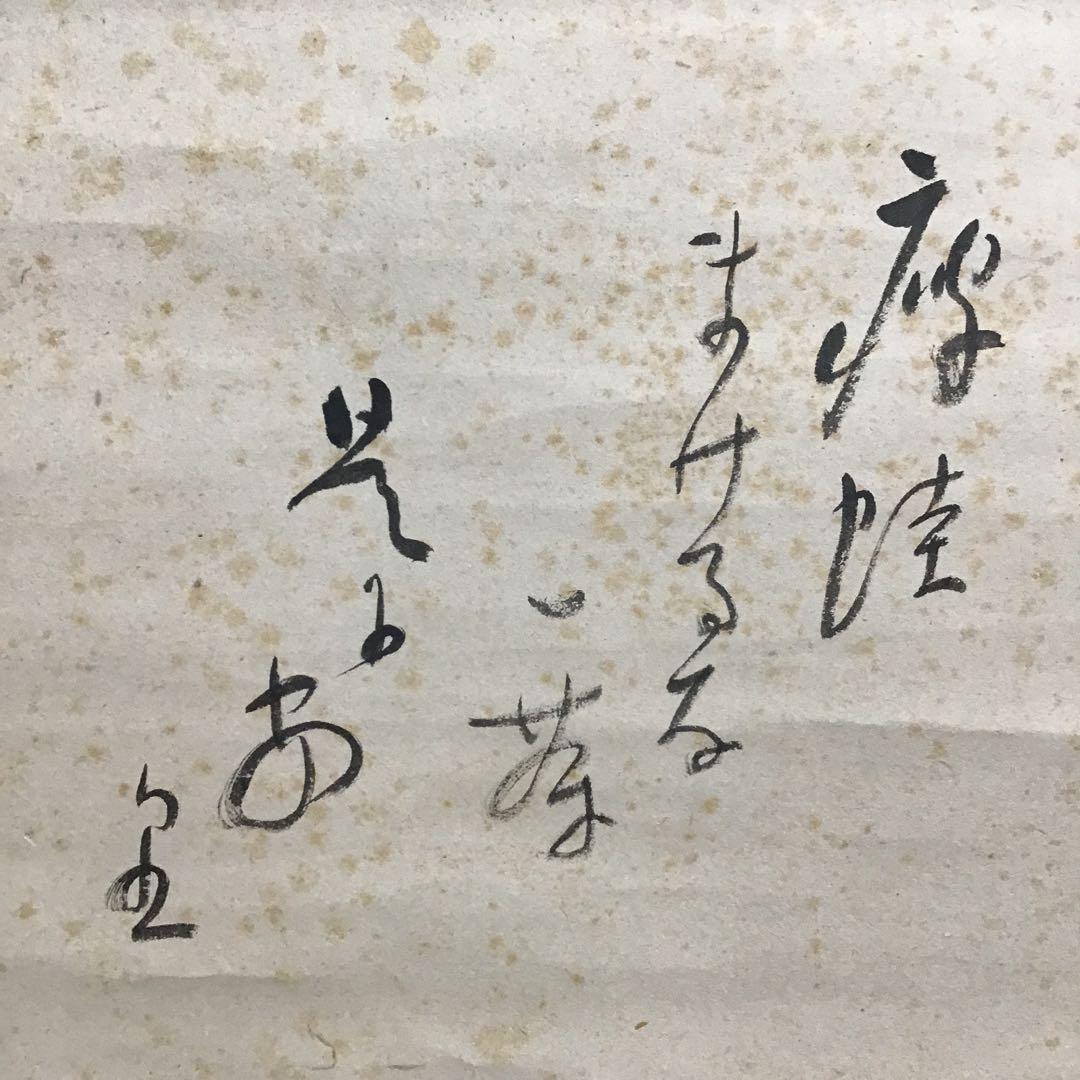 痩蛙
まけるな
一茶
是にあ
り